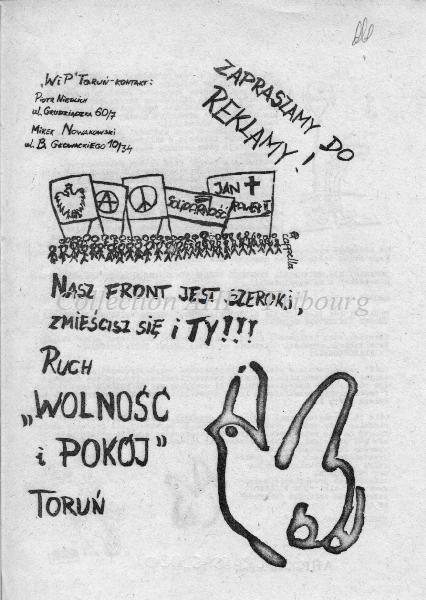 "WiP" TORUŃ - KONTAKT:
PIOTR NIEDLICH
UL. GRUDZIĄDZKA 60/7
MIREK NOWAKOWSKI
UL. B. GŁOWACKIEGO 10/34
ZAPRASZAMY DO
REKLAMY!
A
SOLIDARNOŚĆ
JAN
PAWEŁ II
Cappella
NASZ FRONT JEST SZEROKI,
ZMIEŚCISZ SIĘ i TY!!!
RUCH
„WOLNOŚĆ
i POKÓJ"
TORUŃ